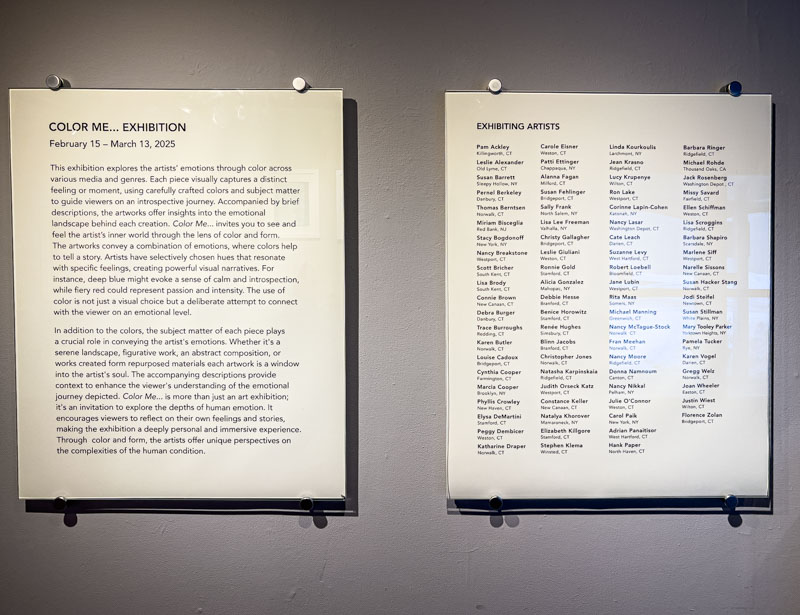 COLOR ME... EXHIBITION
February 15 – March 13, 2025
This exhibition explores the artists' emotions through color across
various media and genres. Each piece visually captures a distinct
feeling or moment, using carefully crafted colors and subject matter
to guide viewers on an introspective journey. Accompanied by brief
descriptions, the artworks offer insights into the emotional
landscape behind each creation. Color Me... invites you to see and
feel the artist's inner world through the lens of color and form.
The artworks convey a combination of emotions, where colors help
to tell a story. Artists have selectively chosen hues that resonate
with specific feelings, creating powerful visual narratives. For
instance, deep blue might evoke a sense of calm and introspection,
while fiery red could represent passion and intensity. The use of
color is not just a visual choice but a deliberate attempt to connect
with the viewer on an emotional level.
In addition to the colors, the subject matter of each piece plays
a crucial role in conveying the artist's emotions. Whether it's a
serene landscape, figurative work, an abstract composition, or
works created form repurposed materials each artwork is a window
into the artist's soul. The accompanying descriptions provide
context to enhance the viewer's understanding of the emotional
journey depicted. Color Me... is more than just an art exhibition;
it's an invitation to explore the depths of human emotion. It
encourages viewers to reflect on their own feelings and stories,
making the exhibition a deeply personal and immersive experience.
Through color and form, the artists offer unique perspectives on
the complexities of the human condition.
EXHIBITING ARTISTS
Pam Ackley
Killingworth, CT
Leslie Alexander
Old Lyme, CT
Susan Barrett
Sleepy Hollow, NY
Pernel Berkeley
Danbury, CT
Thomas Berntsen
Norwalk, CT
Miriam Bisceglia
Red Bank, NJ
Stacy Bogdonoff
New York, NY
Nancy Breakstone
Westport, CT
Scott Bricher
South Kent, CT
Lisa Brody
South Kent, CT
Connie Brown
New Canaan, CT
Debra Burger
Danbury, CT
Trace Burroughs
Redding, CT
Karen Butler
Norwalk, CT
Louise Cadoux
Bridgeport, CT
Cynthia Cooper
Farmington, CT
Marcia Cooper
Brooklyn, NY
Phyllis Crowley
New Haven, CT
Elysa DeMartini
Stamford, CT
Peggy Dembicer
Weston, CT
Katharine Draper
Norwalk, CT
Carole Eisner
Weston, CT
Patti Ettinger
Chappaqua, NY
Alanna Fagan
Milford, CT
Susan Fehlinger
Bridgeport, CT
Sally Frank
North Salem, NY
Lisa Lee Freeman
Valhalla, NY
Christy Gallagher
Bridgeport, CT
Leslie Giuliani
Weston, CT
Ronnie Gold
Stamford, CT
Alicia Gonzalez
Mahopac, NY
Debbie Hesse
Branford, CT
Benice Horowitz
Stamford, CT
Renée Hughes
Stamford, CT
Blinn Jacobs
Branford, CT
Christopher Jones
Norwalk, CT
Natasha Karpinskaia
Ridgefield, CT
Judith Orseck Katz
Westport, CT
Constance Keller
New Canaan, CT
Natalya Khorover
Mamaroneck, NY
Elizabeth Killgore
Stamford, CT
Stephen Klema
Winsted, CT
Linda Kourkoulis
Larchmont, NY
Jean Krasno
Ridgefield, CT
Lucy Krupenye
Wilton, CT
Ron Lake
Westport, CT
Corinne Lapin-Cohen
Katonah, NY
Nancy Lasar
Washington Depot, CT
Cate Leach
Darien, CT
Suzanne Levy
West Hartford, CT
Robert Loebell
Broomfield, CT
Jane Lubin
Westport, CT
Rita Maas
Somers, NY
Michael Manning
Greenwich, CT
Nancy McTague-Stock
Norwalk, CT
Fran Meehan
Norwalk, CT
Nancy Moore
Ridgefield, CT
Donna Namnoum
Canton, CT
Nancy Nikkal
Pelham, NY
Julie O'Connor
Weston, CT
Carol Paik
New York, NY
Adrian Panaitisor
West Hartford, CT
Hank Paper
North Haven, CT
Barbara Ringer
Ridgefield, CT
Michael Rohde
Thousand Oaks, CA
Jack Rosenberg
Washington Depot, CT
Missy Savard
Fairfield, CT
Ellen Schiffman
Weston, CT
Lisa Scroggins
Ridgefield, CT
Barbara Shapiro
Scarsdale, NY
Marlene Siff
Westport, CT
Narelle Sissons
New Canaan, CT
Susan Hacker Stang
Norwalk, CT
Jodi Steifel
Newtown, CT
Susan Stillman
White Plains, NY
Mary Tooley Parker
Yorktown Heights, NY
Pamela Tucker
Rye, NY
Karen Vogel
Darien, CT
Gregg Welz
Norwalk, CT
Joan Wheeler
Easton, CT
Justin Wiest
Wilton, CT
Florence Zolan
Bridgeport, CT